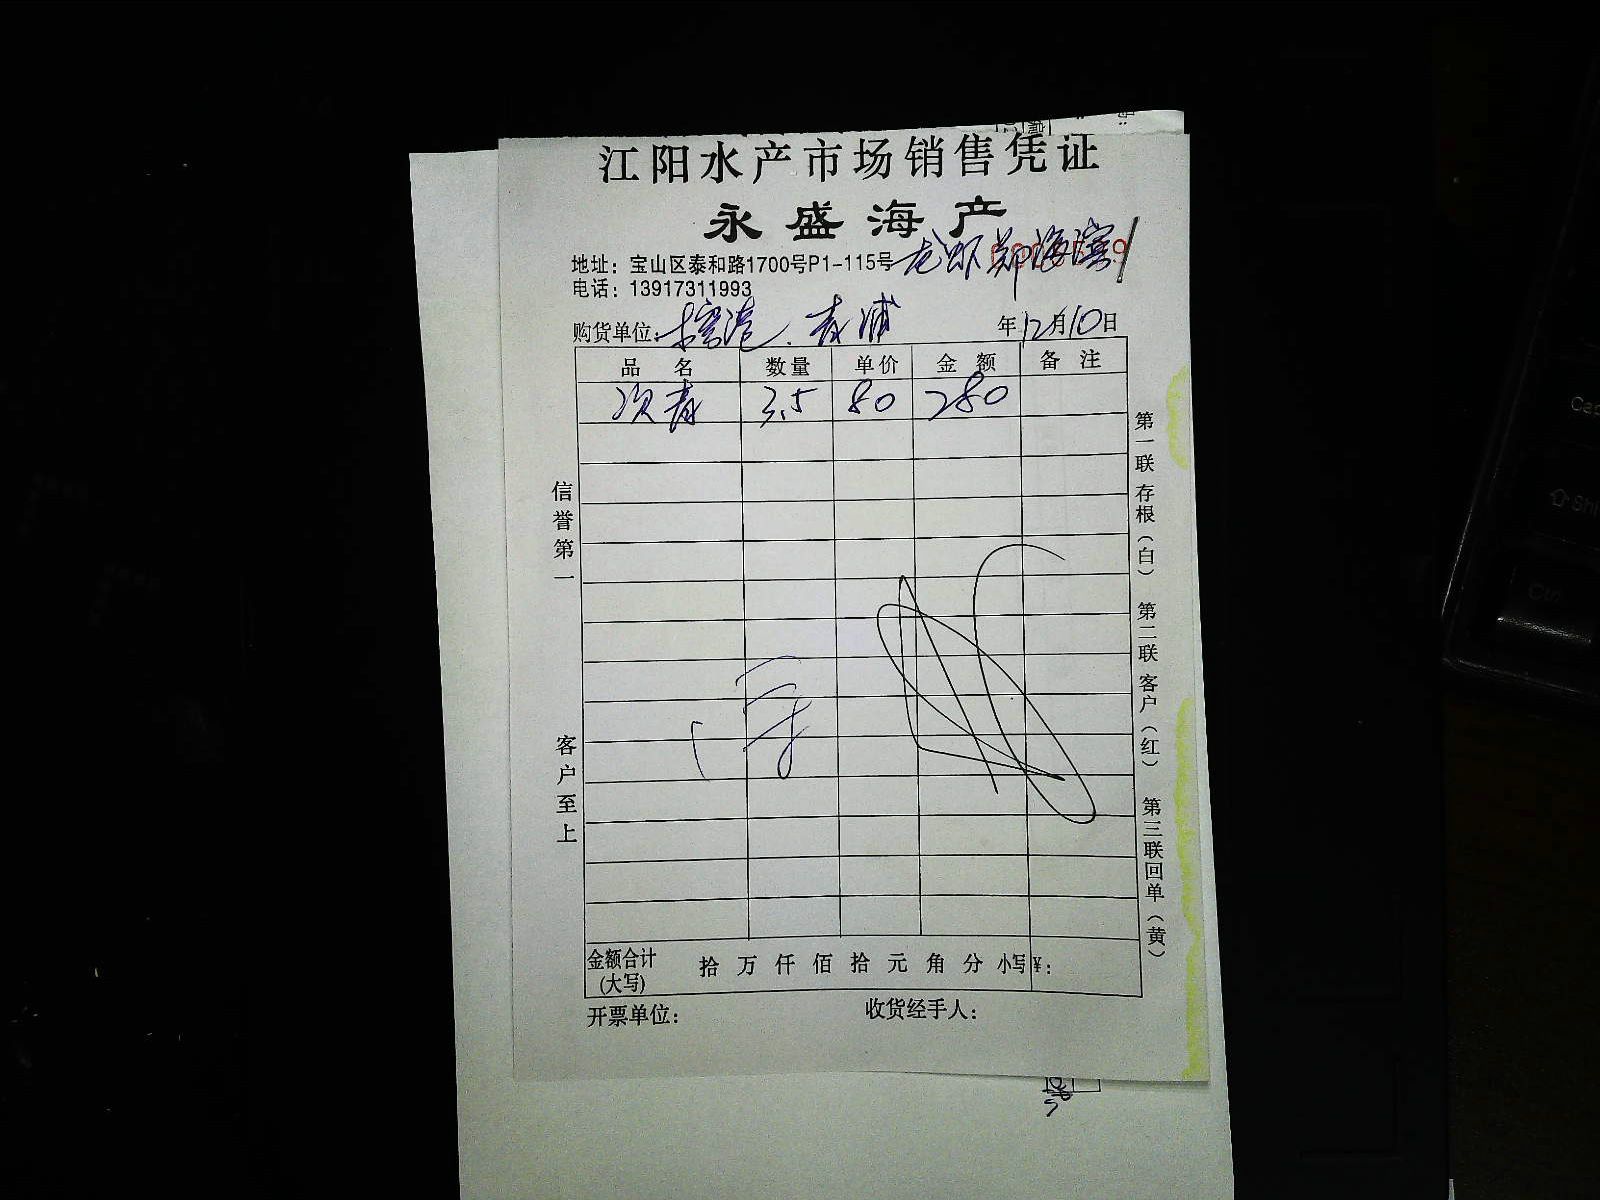 江阳水产市场销售凭证
永盛海产
地址：宝山区泰和路1700号P1-115号 龙虾郑海滨
电话：13917311993
购货单位： 青浦 年12月10日
品名 数量 单价 金额 备注
次青 3.5 80 280
信誉第一
客户至上
第一联 存根（白） 第二联 客户（红） 第三联回单（黄）
金额合计(大写) 拾 万 仟 佰 拾 元 角 分 小写¥：
开票单位： 收货经手人：